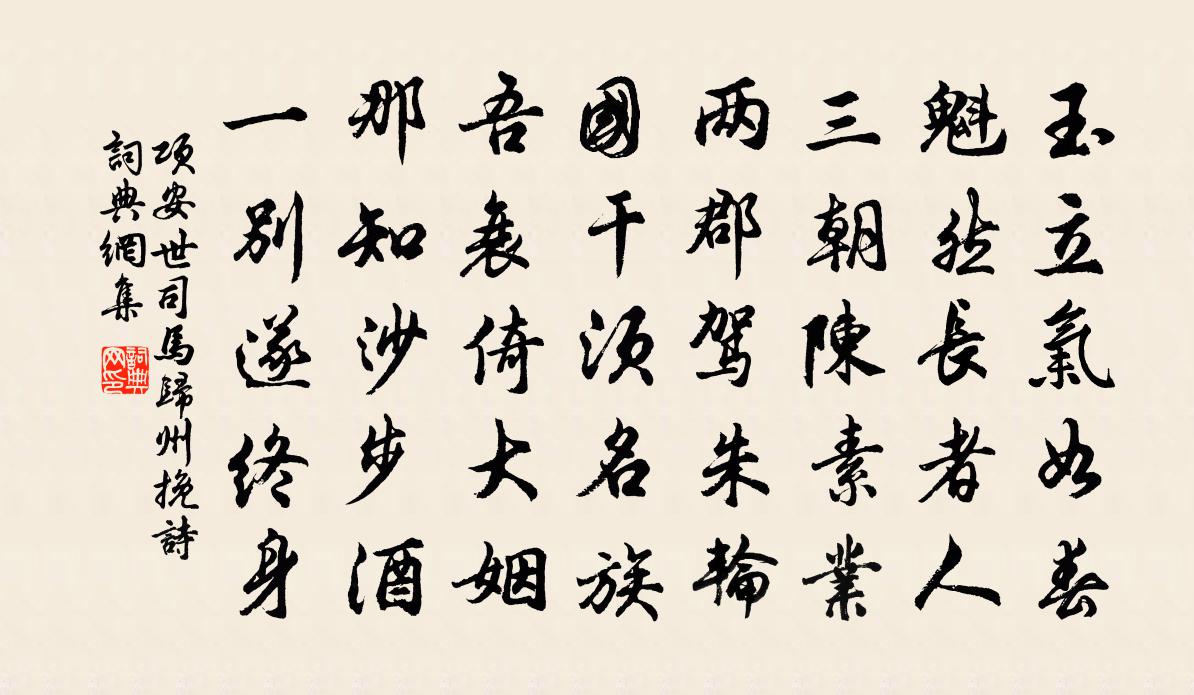 玉立氣如春
魁然長者人
三朝陳素業
两郡駕朱輪
國干須名族
吾衰倚大姻
那知沙步酒
一別遂終身
項安世司馬歸州挽詩
詞典網集
詞典网印